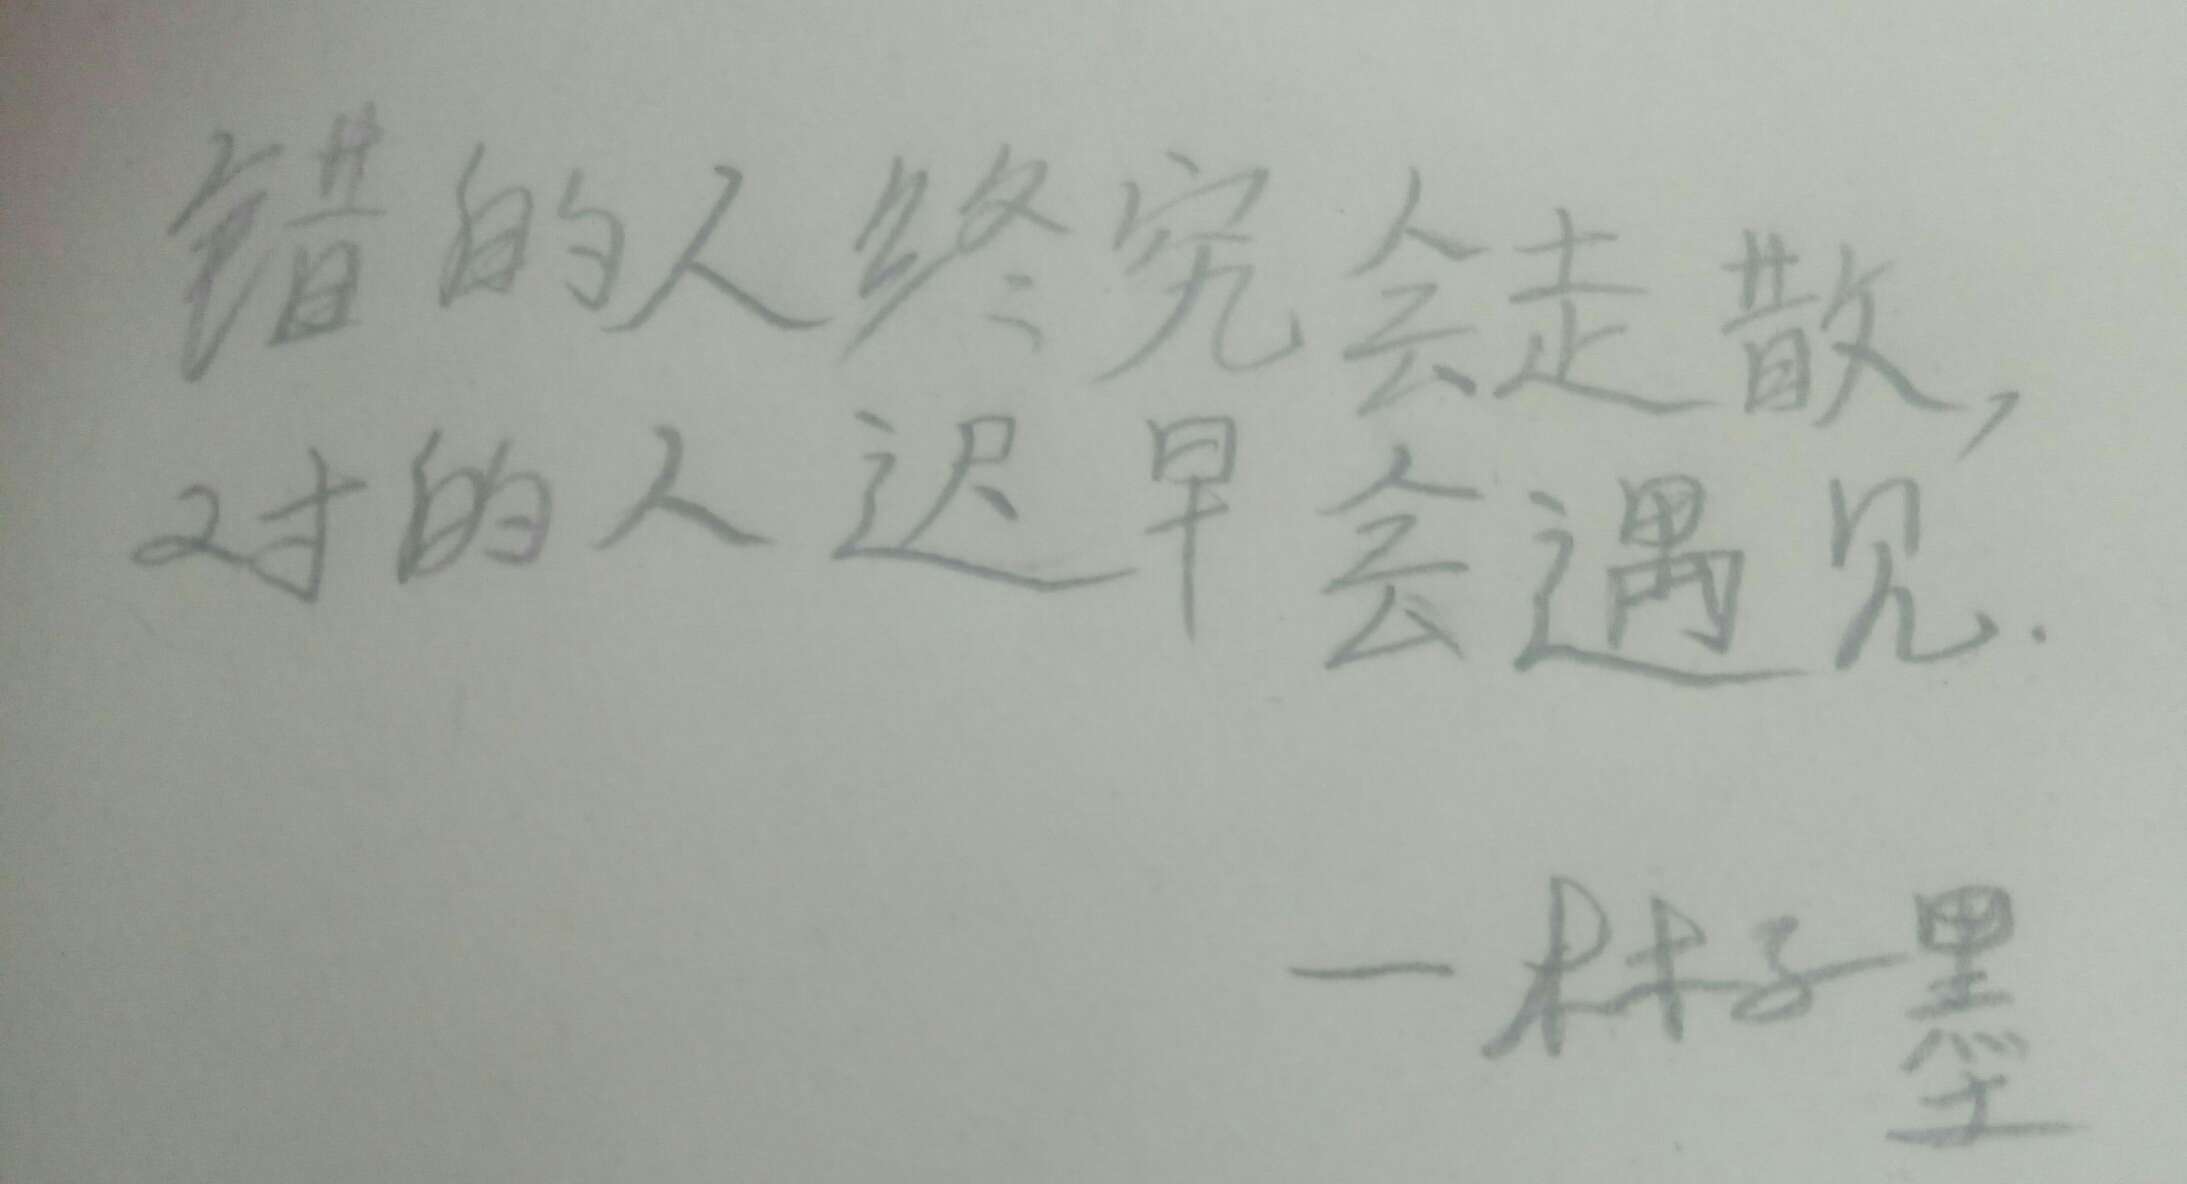 错的人终究会走散,
对的人迟早会遇见.
—林子墨